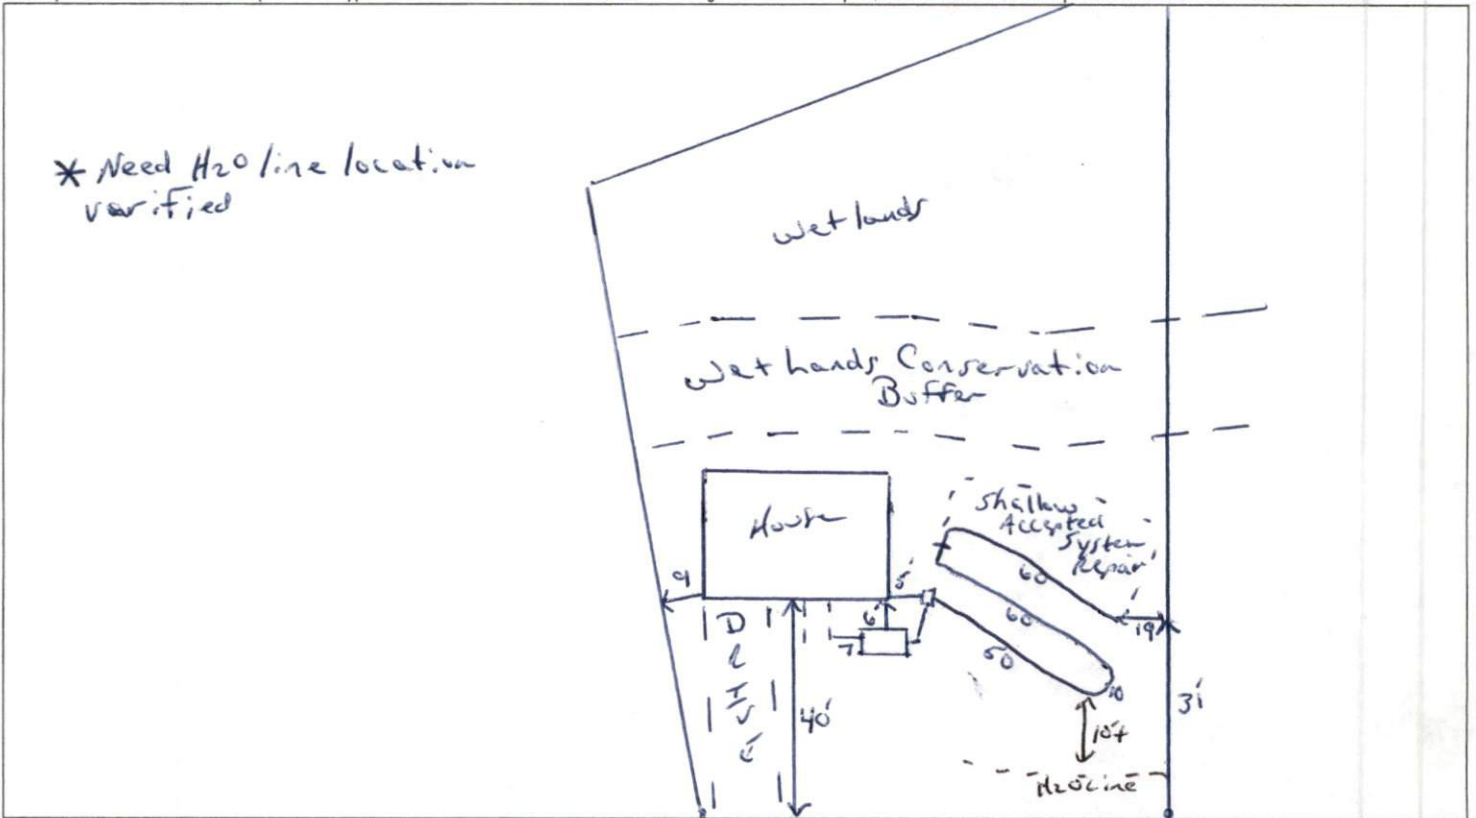 * Need H2O line location
varified
wetlands
Wetlands Conservation
Buffer
House
Shallow
Accepted
System
Repair
60
60
50
10
19
9
5'
6'
7
D
R
I
V
E
40'
31'
10'+
H2O Line